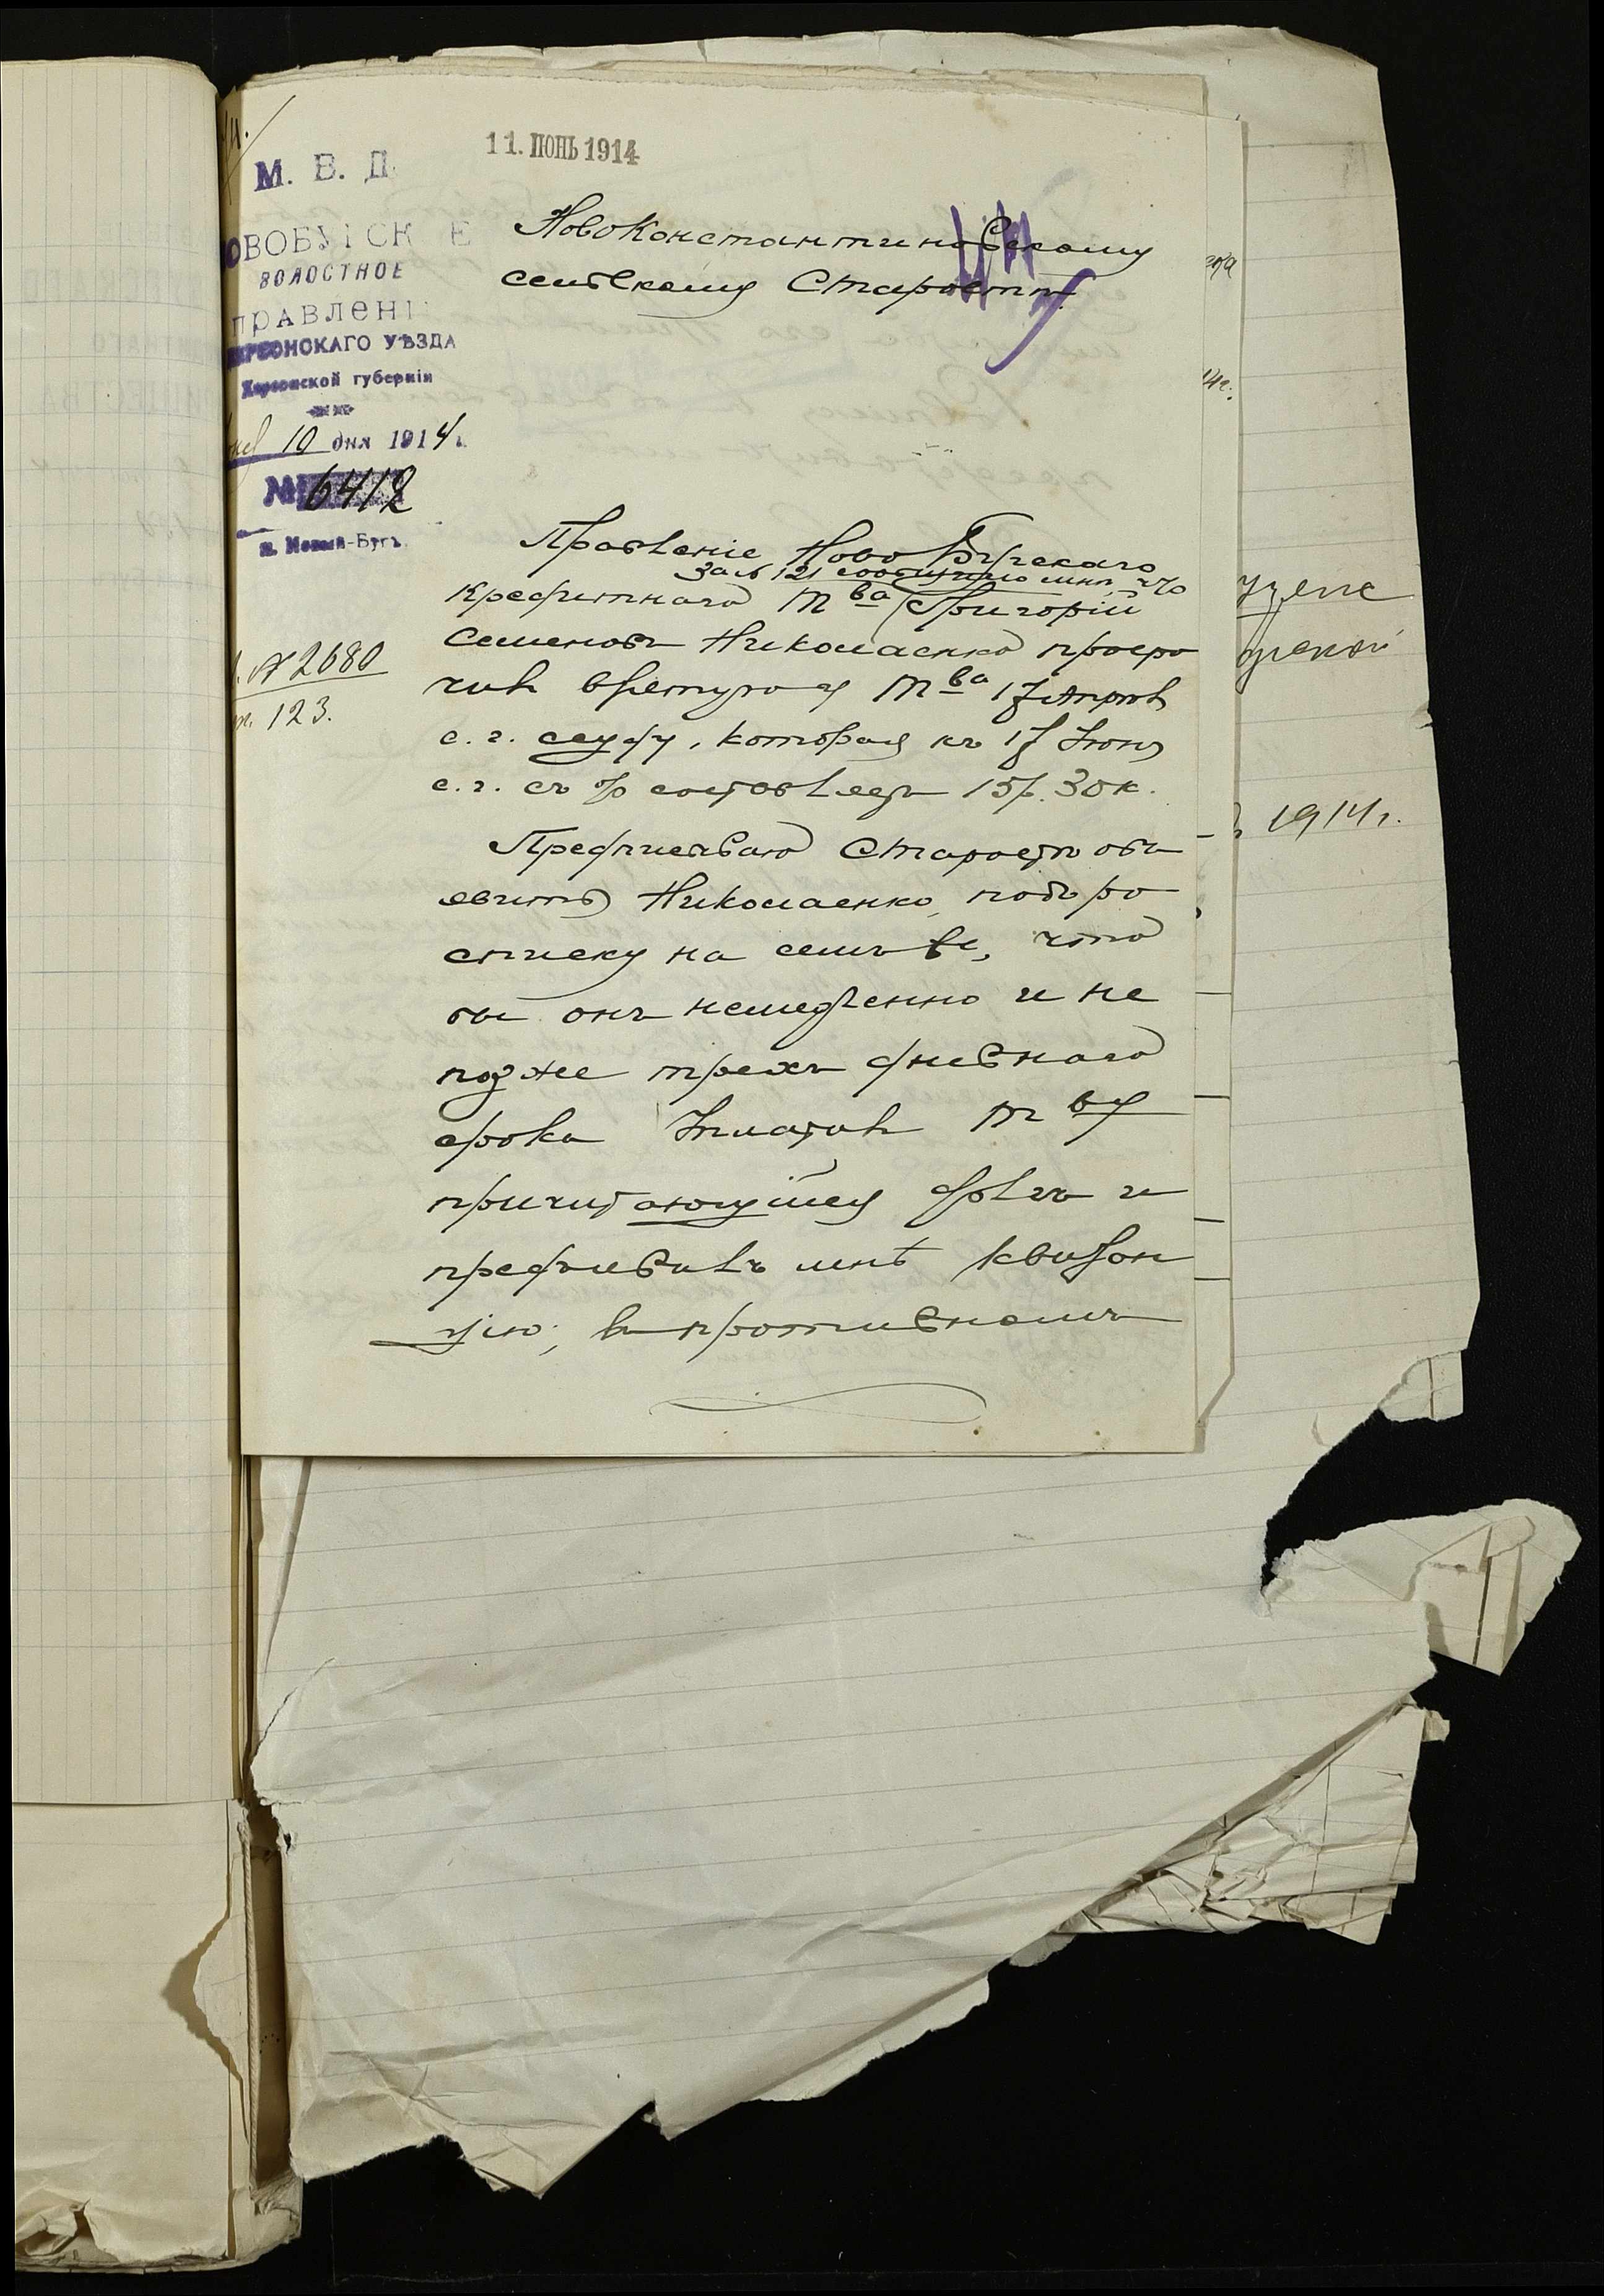 11. ІЮНЬ 1914
М. В. Д.
ОВОБУГСК Е
ВОЛОСТНОЕ
ПРАВЛЕНІ
ХЕРСОНСКАГО УѢЗДА
Херсонской губерніи
10 дня 1914 г.
№ 6412
м. Новый-Бугъ
№ 2680
123.
НовоКонстантиновскому
сельскому Старостѣ.
Правленіе НовоБугскаго
за № 121 сообщило мнѣ, что
кредитнаго Тва Григорій
Семеновъ Николаенко просро
чилъ взятую у Тва 17 Апрѣля
с. г. ссуду, которая къ 17 Іюня
с. г. съ % составляетъ 15р. 30к.
Предписываю Старостѣ объ
явить Николаенко, подъ ро
списку на семъ же, что
бы онъ немедленно и не
позже трехъ дневнаго
срока уплатилъ Тву
причитающійся долгъ и
предъявилъ мнѣ квитан
цію; въ противномъ
1914 г.